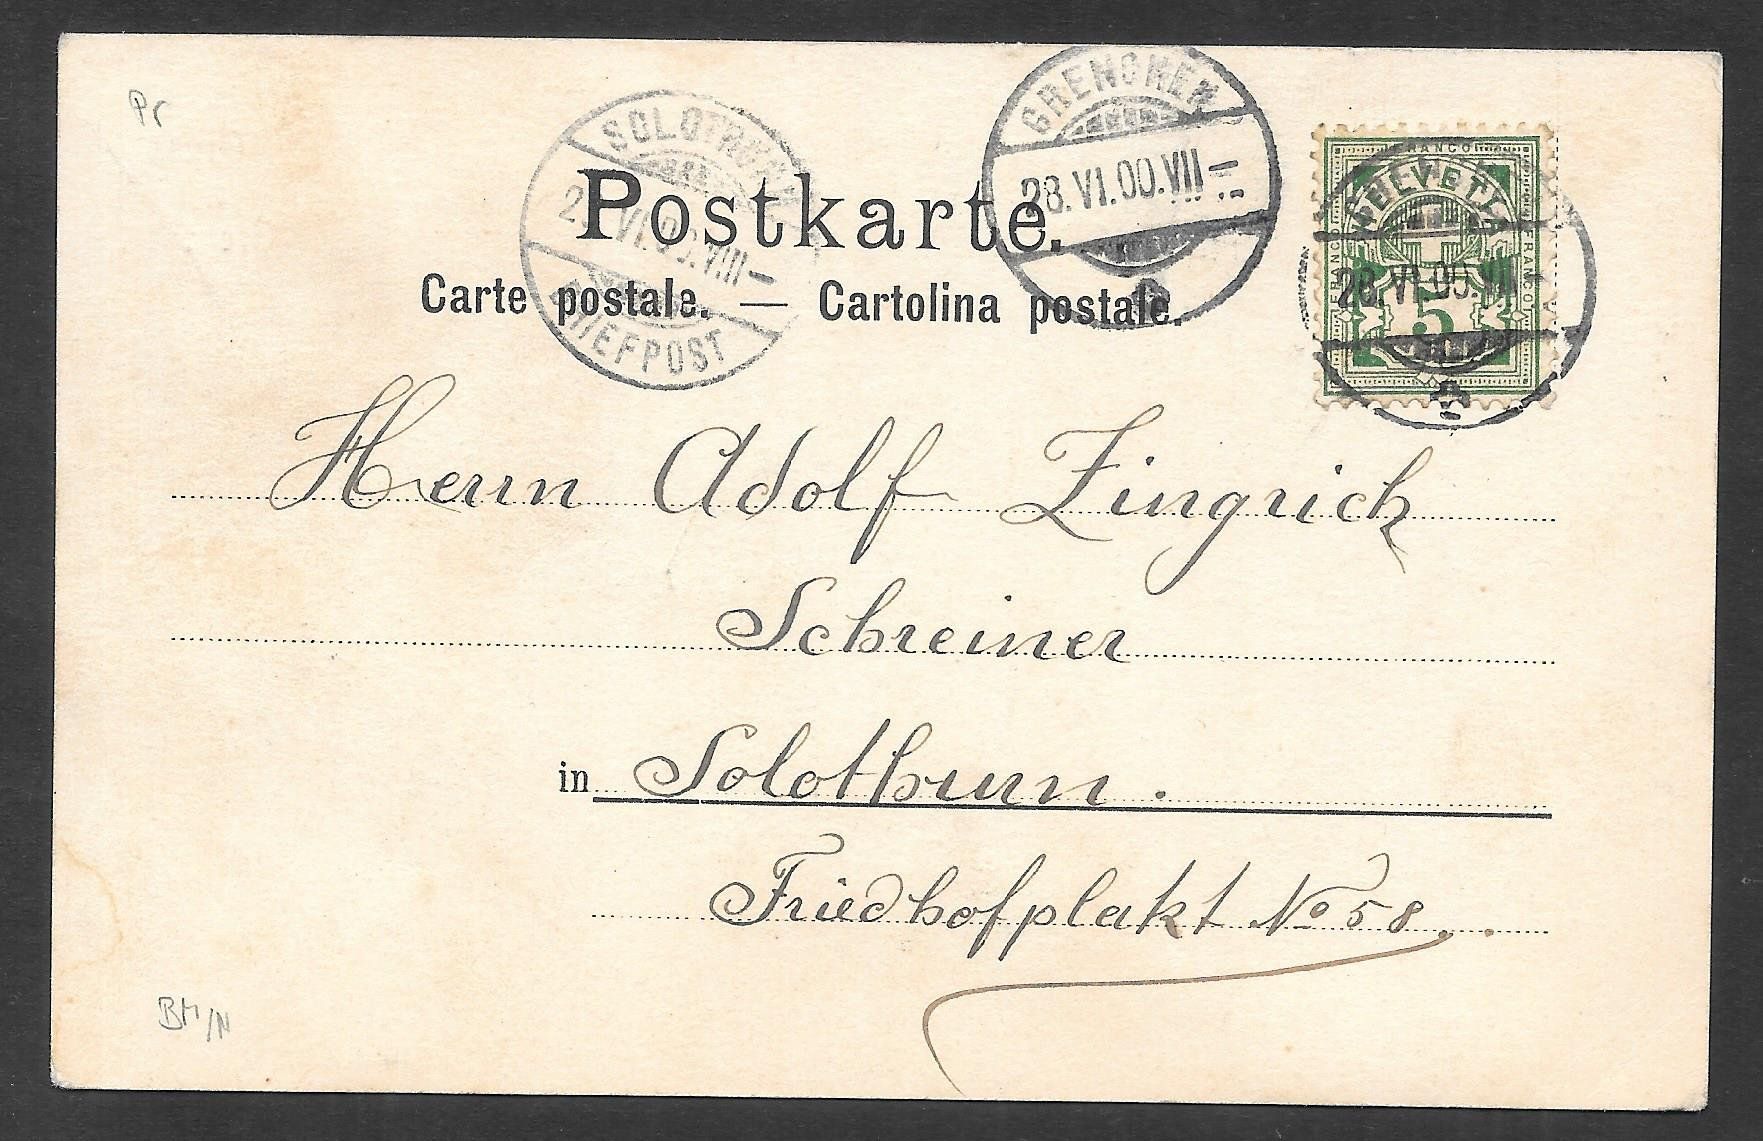 Pr
SOLOTHURN
VI.00.VIII–
BRIEFPOST
GRENCHEN
28.VI.00.VII–
FRANCO
HELVETIA
FRANCO
FRANCO
28.VI.00.VII
5
Postkarte.
Carte postale. — Cartolina postale.
Herrn Adolf Zingrich
Schreiner
in Solothurn.
Friedhofplakt No 58.
BM/N